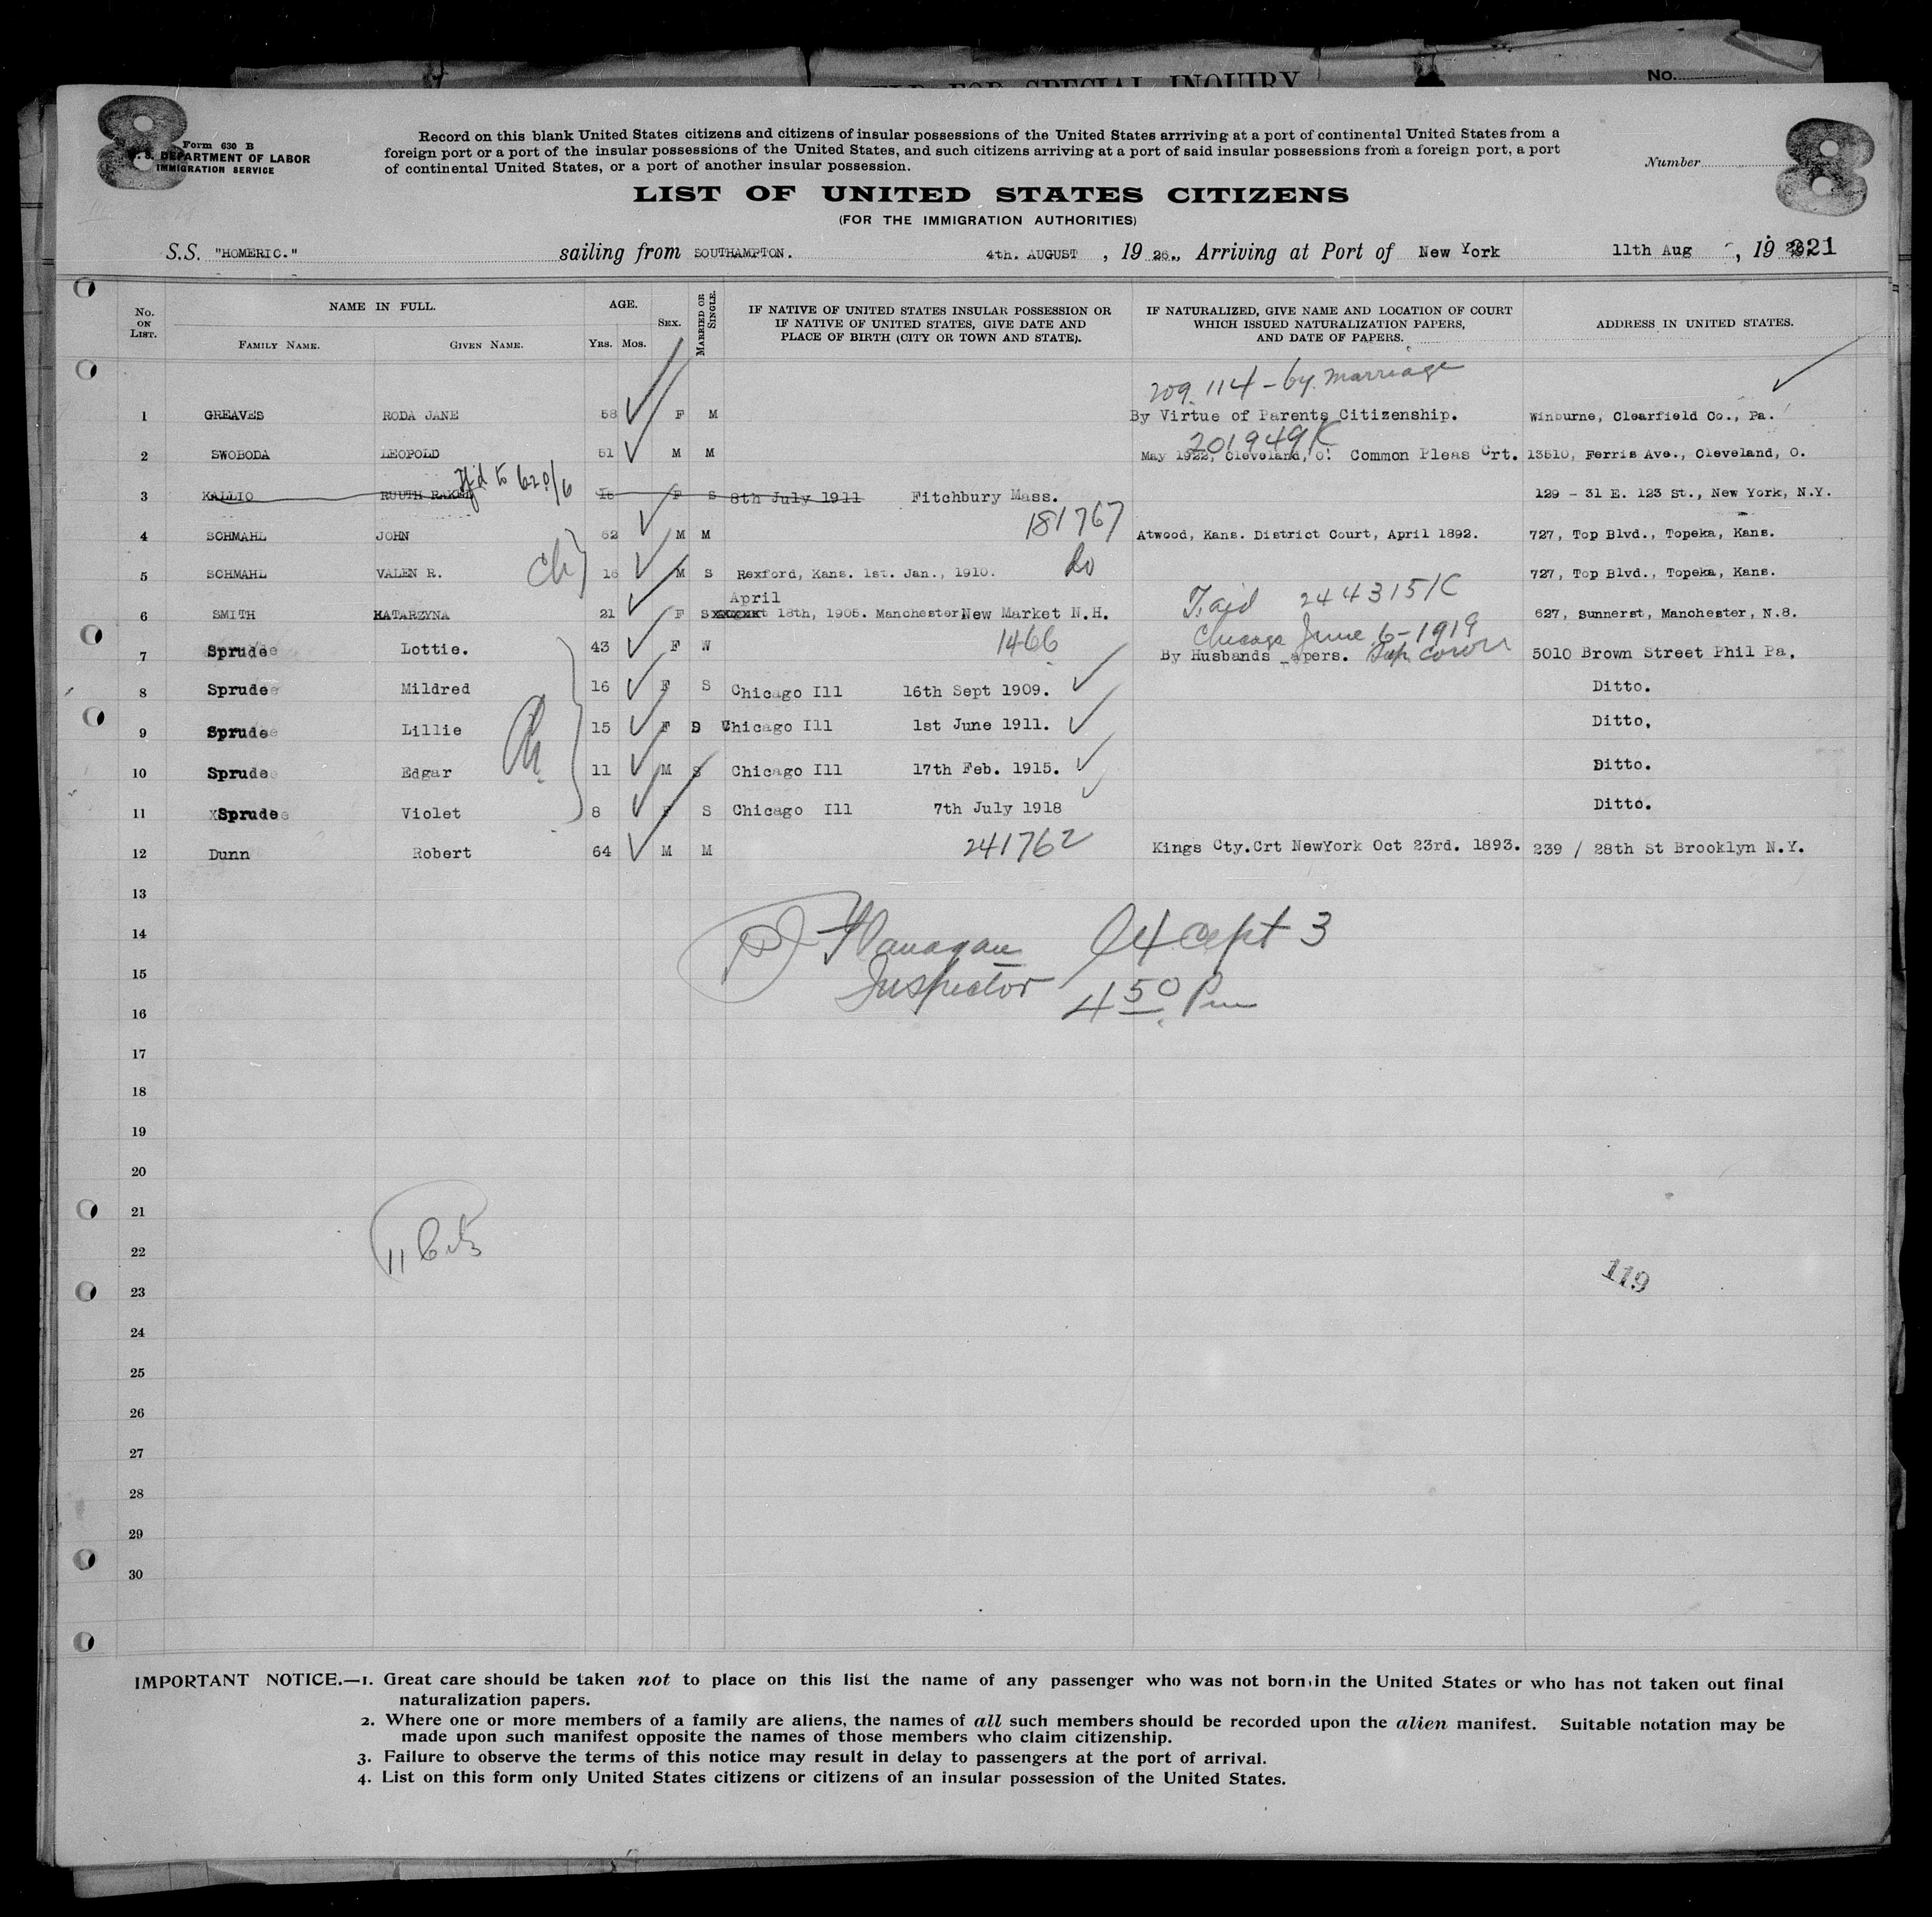 HELD FOR SPECIAL INQUIRY
No.
8
8
Form 630 B
U. S. DEPARTMENT OF LABOR
IMMIGRATION SERVICE
Record on this blank United States citizens and citizens of insular possessions of the United States arrriving at a port of continental United States from a
foreign port or a port of the insular possessions of the United States, and such citizens arriving at a port of said insular possessions from a foreign port, a port
of continental United States, or a port of another insular possession.
Number
LIST OF UNITED STATES CITIZENS
(FOR THE IMMIGRATION AUTHORITIES)
S.S. "HOMERIC." sailing from SOUTHAMPTON. 4th. AUGUST , 19 26., Arriving at Port of New York 11th Aug , 19 26 221
No. ON LIST.
NAME IN FULL.
FAMILY NAME. GIVEN NAME.
AGE.
YRS. MOS.
SEX.
MARRIED OR SINGLE.
IF NATIVE OF UNITED STATES INSULAR POSSESSION OR
IF NATIVE OF UNITED STATES, GIVE DATE AND
PLACE OF BIRTH (CITY OR TOWN AND STATE).
IF NATURALIZED, GIVE NAME AND LOCATION OF COURT
WHICH ISSUED NATURALIZATION PAPERS,
AND DATE OF PAPERS.
ADDRESS IN UNITED STATES.
209.114 - by marriage
1 GREAVES RODA JANE 58 F M By Virtue of Parents Citizenship. Winburne, Clearfield Co., Pa.
201949 C
2 SWOBODA LEOPOLD 51 M M May 1922, Cleveland, O. Common Pleas Crt. 13510, Ferris Ave., Cleveland, O.
3 KALLIO RUUTH 15 F S 8th July 1911 Fitchbury Mass. 129 - 31 E. 123 St., New York, N.Y.
181767
4 SCHMAHL JOHN 52 M M Atwood, Kans. District Court, April 1892. 727, Top Blvd., Topeka, Kans.
Do
5 SCHMAHL VALEN R. 16 M S Rexford, Kans. 1st. Jan., 1910. 727, Top Blvd., Topeka, Kans.
April
244315/C
6 SMITH KATARZYNA 21 F S 18th, 1905. Manchester New Market N.H. 627, Sunnerst, Manchester, N.8.
1466
Chicago June 6-1919
7 Sprude Lottie. 43 F W By Husbands apers. Sup. Court 5010 Brown Street Phil Pa.
8 Sprude Mildred 16 F S Chicago Ill 16th Sept 1909. Ditto.
9 Sprude Lillie 15 F S Chicago Ill 1st June 1911. Ditto.
10 Sprude Edgar 11 M S Chicago Ill 17th Feb. 1915. Ditto.
11 Sprude Violet 8 F S Chicago Ill 7th July 1918 Ditto.
241762
12 Dunn Robert 64 M M Kings Cty.Crt NewYork Oct 23rd. 1893. 239 / 28th St Brooklyn N.Y.
13
14 Flanagan Except 3
15 Inspector 4 50 Pm
16
17
18
19
20
21
22
11 Cits
23
119
24
25
26
27
28
29
30
IMPORTANT NOTICE.—1. Great care should be taken not to place on this list the name of any passenger who was not born in the United States or who has not taken out final
naturalization papers.
2. Where one or more members of a family are aliens, the names of all such members should be recorded upon the alien manifest. Suitable notation may be
made upon such manifest opposite the names of those members who claim citizenship.
3. Failure to observe the terms of this notice may result in delay to passengers at the port of arrival.
4. List on this form only United States citizens or citizens of an insular possession of the United States.